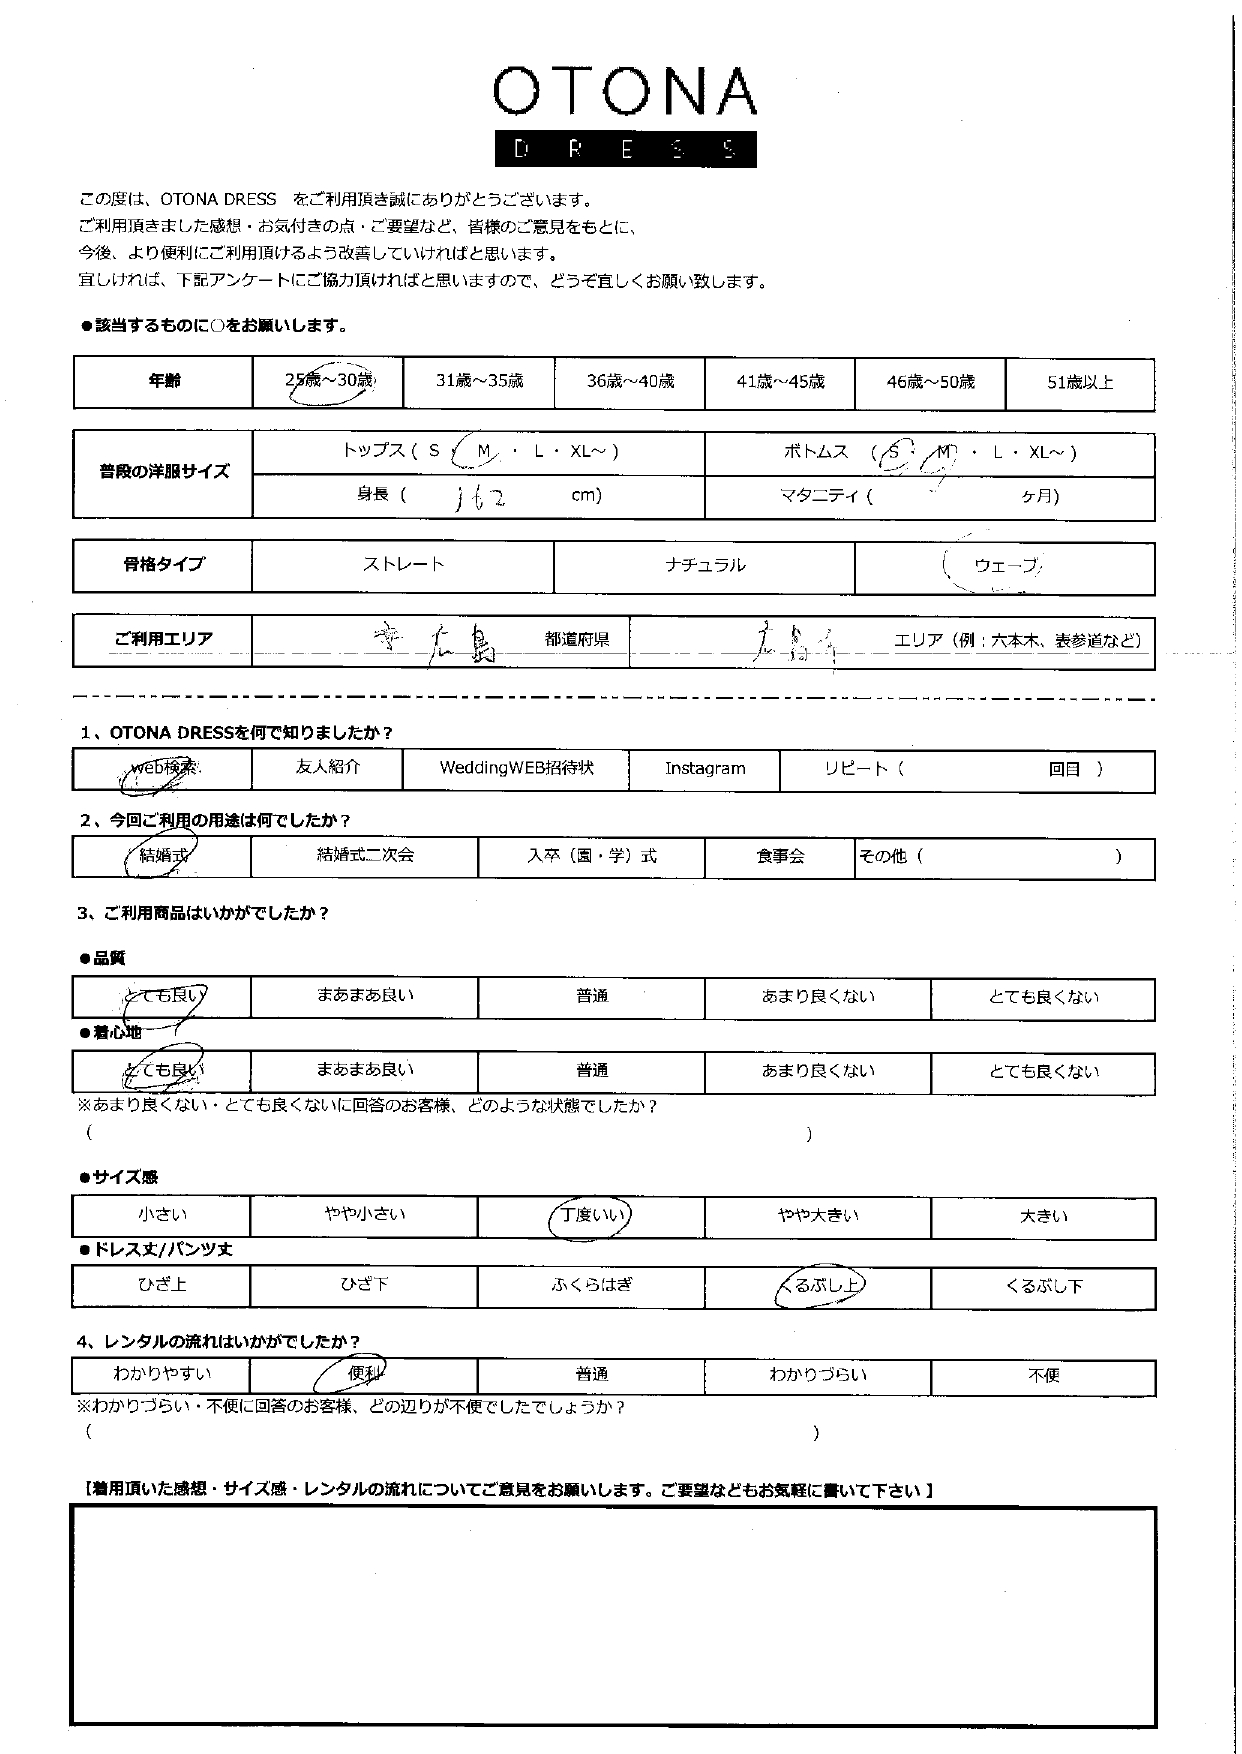 OTONA
DRESS
この度は、OTONA DRESS　をご利用頂き誠にありがとうございます。
ご利用頂きました感想・お気付きの点・ご要望など、皆様のご意見をもとに、
今後、より便利にご利用頂けるよう改善していければと思います。
宜しければ、下記アンケートにご協力頂ければと思いますので、どうぞ宜しくお願い致します。
●該当するものに○をお願いします。
年齢 25歳～30歳 31歳～35歳 36歳～40歳 41歳～45歳 46歳～50歳 51歳以上
普段の洋服サイズ トップス ( S ・ M ・ L ・ XL～ ) ボトムス ( S ・ M ・ L ・ XL～ )
身長 ( 162 cm) マタニティ ( ヶ月)
骨格タイプ ストレート ナチュラル ウェーブ
ご利用エリア 広島 都道府県 広島市 エリア（例：六本木、表参道など）
1、OTONA DRESSを何で知りましたか？
web検索 友人紹介 WeddingWEB招待状 Instagram リピート ( 回目 )
2、今回ご利用の用途は何でしたか？
結婚式 結婚式二次会 入卒（園・学）式 食事会 その他 ( )
3、ご利用商品はいかがでしたか？
●品質
とても良い まあまあ良い 普通 あまり良くない とても良くない
●着心地
とても良い まあまあ良い 普通 あまり良くない とても良くない
※あまり良くない・とても良くないに回答のお客様、どのような状態でしたか？
( )
●サイズ感
小さい やや小さい 丁度いい やや大きい 大きい
●ドレス丈/パンツ丈
ひざ上 ひざ下 ふくらはぎ くるぶし上 くるぶし下
4、レンタルの流れはいかがでしたか？
わかりやすい 便利 普通 わかりづらい 不便
※わかりづらい・不便に回答のお客様、どの辺りが不便でしたでしょうか？
( )
【着用頂いた感想・サイズ感・レンタルの流れについてご意見をお願いします。ご要望などもお気軽に書いて下さい 】